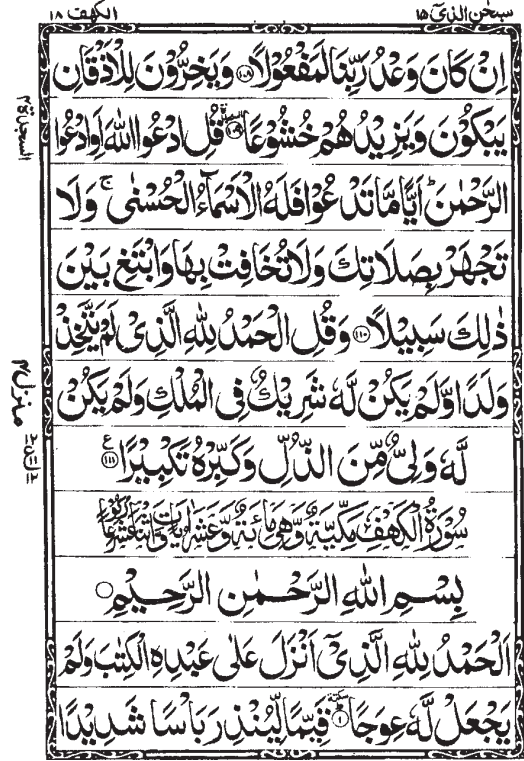 سبحٰن الذی ١٥
الکهف ١٨
اِنْ كَانَ وَعْدُ رَبِّنَا لَمَفْعُوْلًا ﴿١٠٨﴾ وَيَخِرُّوْنَ لِلْاَذْقَانِ
يَبْكُوْنَ وَيَزِيْدُهُمْ خُشُوْعًا ﴿١٠٩﴾ قُلِ ادْعُوا اللّٰهَ اَوِادْعُوا
الرَّحْمٰنَ ؕ اَيًّا مَّا تَدْعُوْا فَلَهُ الْاَسْمَآءُ الْحُسْنٰى ۚ وَلَا
تَجْهَرْ بِصَلَاتِكَ وَلَا تُخَافِتْ بِهَا وَابْتَغِ بَيْنَ
ذٰلِكَ سَبِيْلًا ﴿١١٠﴾ وَقُلِ الْحَمْدُ لِلّٰهِ الَّذِىْ لَمْ يَتَّخِذْ
وَلَدًا وَّلَمْ يَكُنْ لَّهٗ شَرِيْكٌ فِى الْمُلْكِ وَلَمْ يَكُنْ
لَّهٗ وَلِىٌّ مِّنَ الذُّلِّ وَكَبِّرْهُ تَكْبِيْرًا ﴿١١١﴾ ع
سُوْرَةُ الْكَهْفِ مَكِّيَّةٌ وَّهِىَ مِائَةٌ وَّعَشْرُ اٰيَاتٍ وَّاثْنَتَا عَشْرَةَ رُكُوْعًا
بِسْمِ اللّٰهِ الرَّحْمٰنِ الرَّحِيْمِ
اَلْحَمْدُ لِلّٰهِ الَّذِىْۤ اَنْزَلَ عَلٰى عَبْدِهِ الْكِتٰبَ وَلَمْ
يَجْعَلْ لَّهٗ عِوَجًا ﴿١﴾ قَيِّمًا لِّيُنْذِرَ بَاْسًا شَدِيْدًا
السجدة ٤
منزل ٤